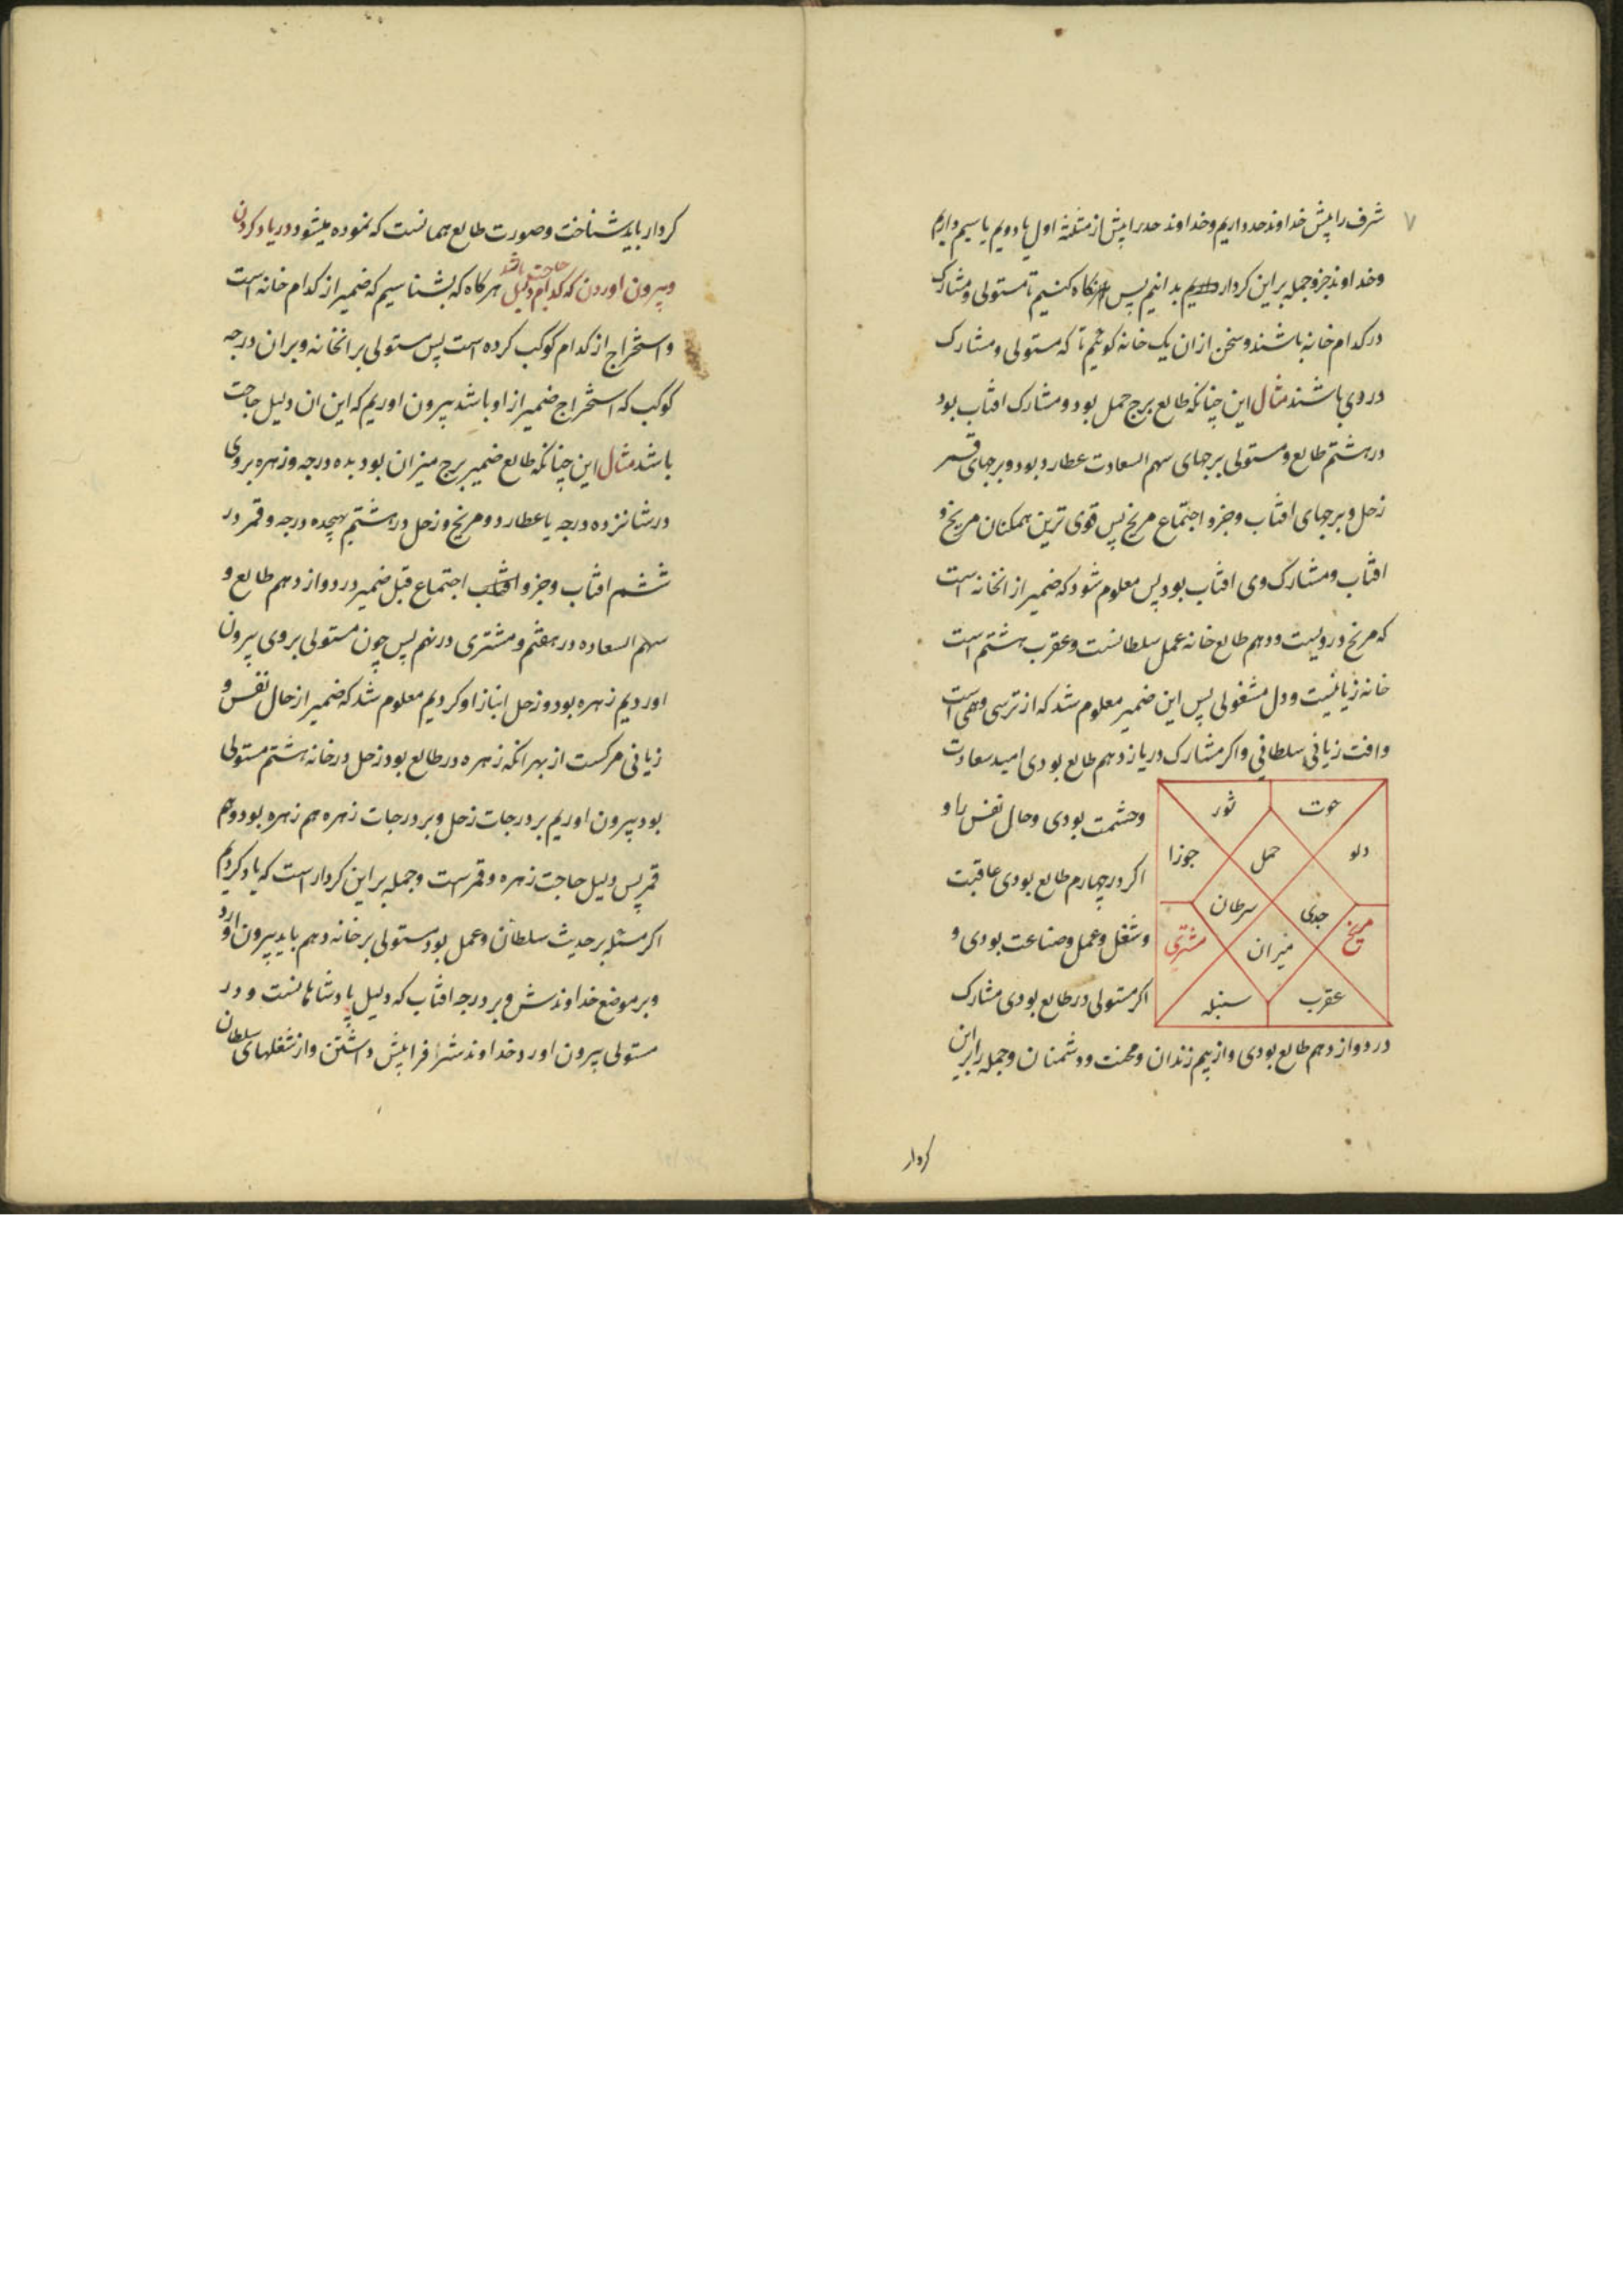 ۷
شرف را پیش خداوند حد داریم و خداوند حد را پیش از مثلثهٔ اول یا دویم یا سیم داریم
وخداوند جزو جمله بر این کردار بدانیم پس نکاه کنیم تا مستولی و مشارک
در کدام خانه باشند و سخن از ان یک خانه کوئیم تا که مستولی و مشارک
در وی باشند مثال این چنانکه طالع برج حمل بود و مشارک افتاب بود
در هشتم طالع و مستولی برجهای سهم السعادت عطارد بود و برجهای قمر
زحل و برجهای افتاب و جزو اجتماع مریخ پس قوی ترین همکنان مریخ و
افتاب و مشارک وی افتاب بود پس معلوم شود که ضمیر از انخانه است
که مریخ درویست و دهم طالع خانه عمل سلطانست و عقرب هشتم است
خانه زیانیست و دل مشغولی پس این ضمیر معلوم شد که از ترسی وهمی است
وافت زیانی سلطانی و اکر مشارک در یازدهم طالع بودی امید سعادت
وحشمت بودی و حال نفس را و
اکر در چهارم طالع بودی عاقبت
وشغل وعمل وصناعت بودی و
اکر مستولی در طالع بودی مشارک
حوت
ثور
دلو
حمل
جوزا
جدی
سرطان
مریخ
میزان
مشتری
عقرب
سنبله
در دوازدهم طالع بودی و از بیم زندان و محنت و دشمنان و جمله را براین
کردار
کردار باید شناخت و صورت طالع همانست که نموده میشود در یاد کردن
وبیرون اوردن که کدام دلیل حاجت باشد هرکاه که بشناسیم که ضمیر از کدام خانه است
واستخراج از کدام کوکب کرده است پس مستولی بر انخانه و بران درجه
کوکب که استخراج ضمیر از او باشد بیرون اوریم که این ان دلیل حاجت
باشد مثال این چنانکه طالع ضمیر برج میزان بود بده درجه و زهره بروی
در شانزده درجه یا عطارد و مریخ و زحل در هشتم بهجده درجه و قمر در
ششم افتاب و جزو افتاب اجتماع قبل ضمیر در دوازدهم طالع و
سهم السعاده در هفتم و مشتری در نهم پس چون مستولی بروی بیرون
اوردیم زهره بود و زحل انباز او کردیم معلوم شد که ضمیر از حال نفس و
زیانی مرکست از بهر انکه زهره در طالع بود زحل در خانه هشتم مستولی
بود بیرون اوریم بر درجات زحل و بر درجات زهره هم زهره بود وهم
قمر پس دلیل حاجت زهره و قمر است و جمله بر این کردار است که یاد کردیم
اکر مسئله بر حدیث سلطان و عمل بود مستولی بر خانه دهم باید بیرون اورد
وبر موضع خداوندش و بر درجه افتاب که دلیل پادشاهانست و در
مستولی بیرون اورد و خداوند شرا فرا پیش داشتن واز شغلهای سلطان